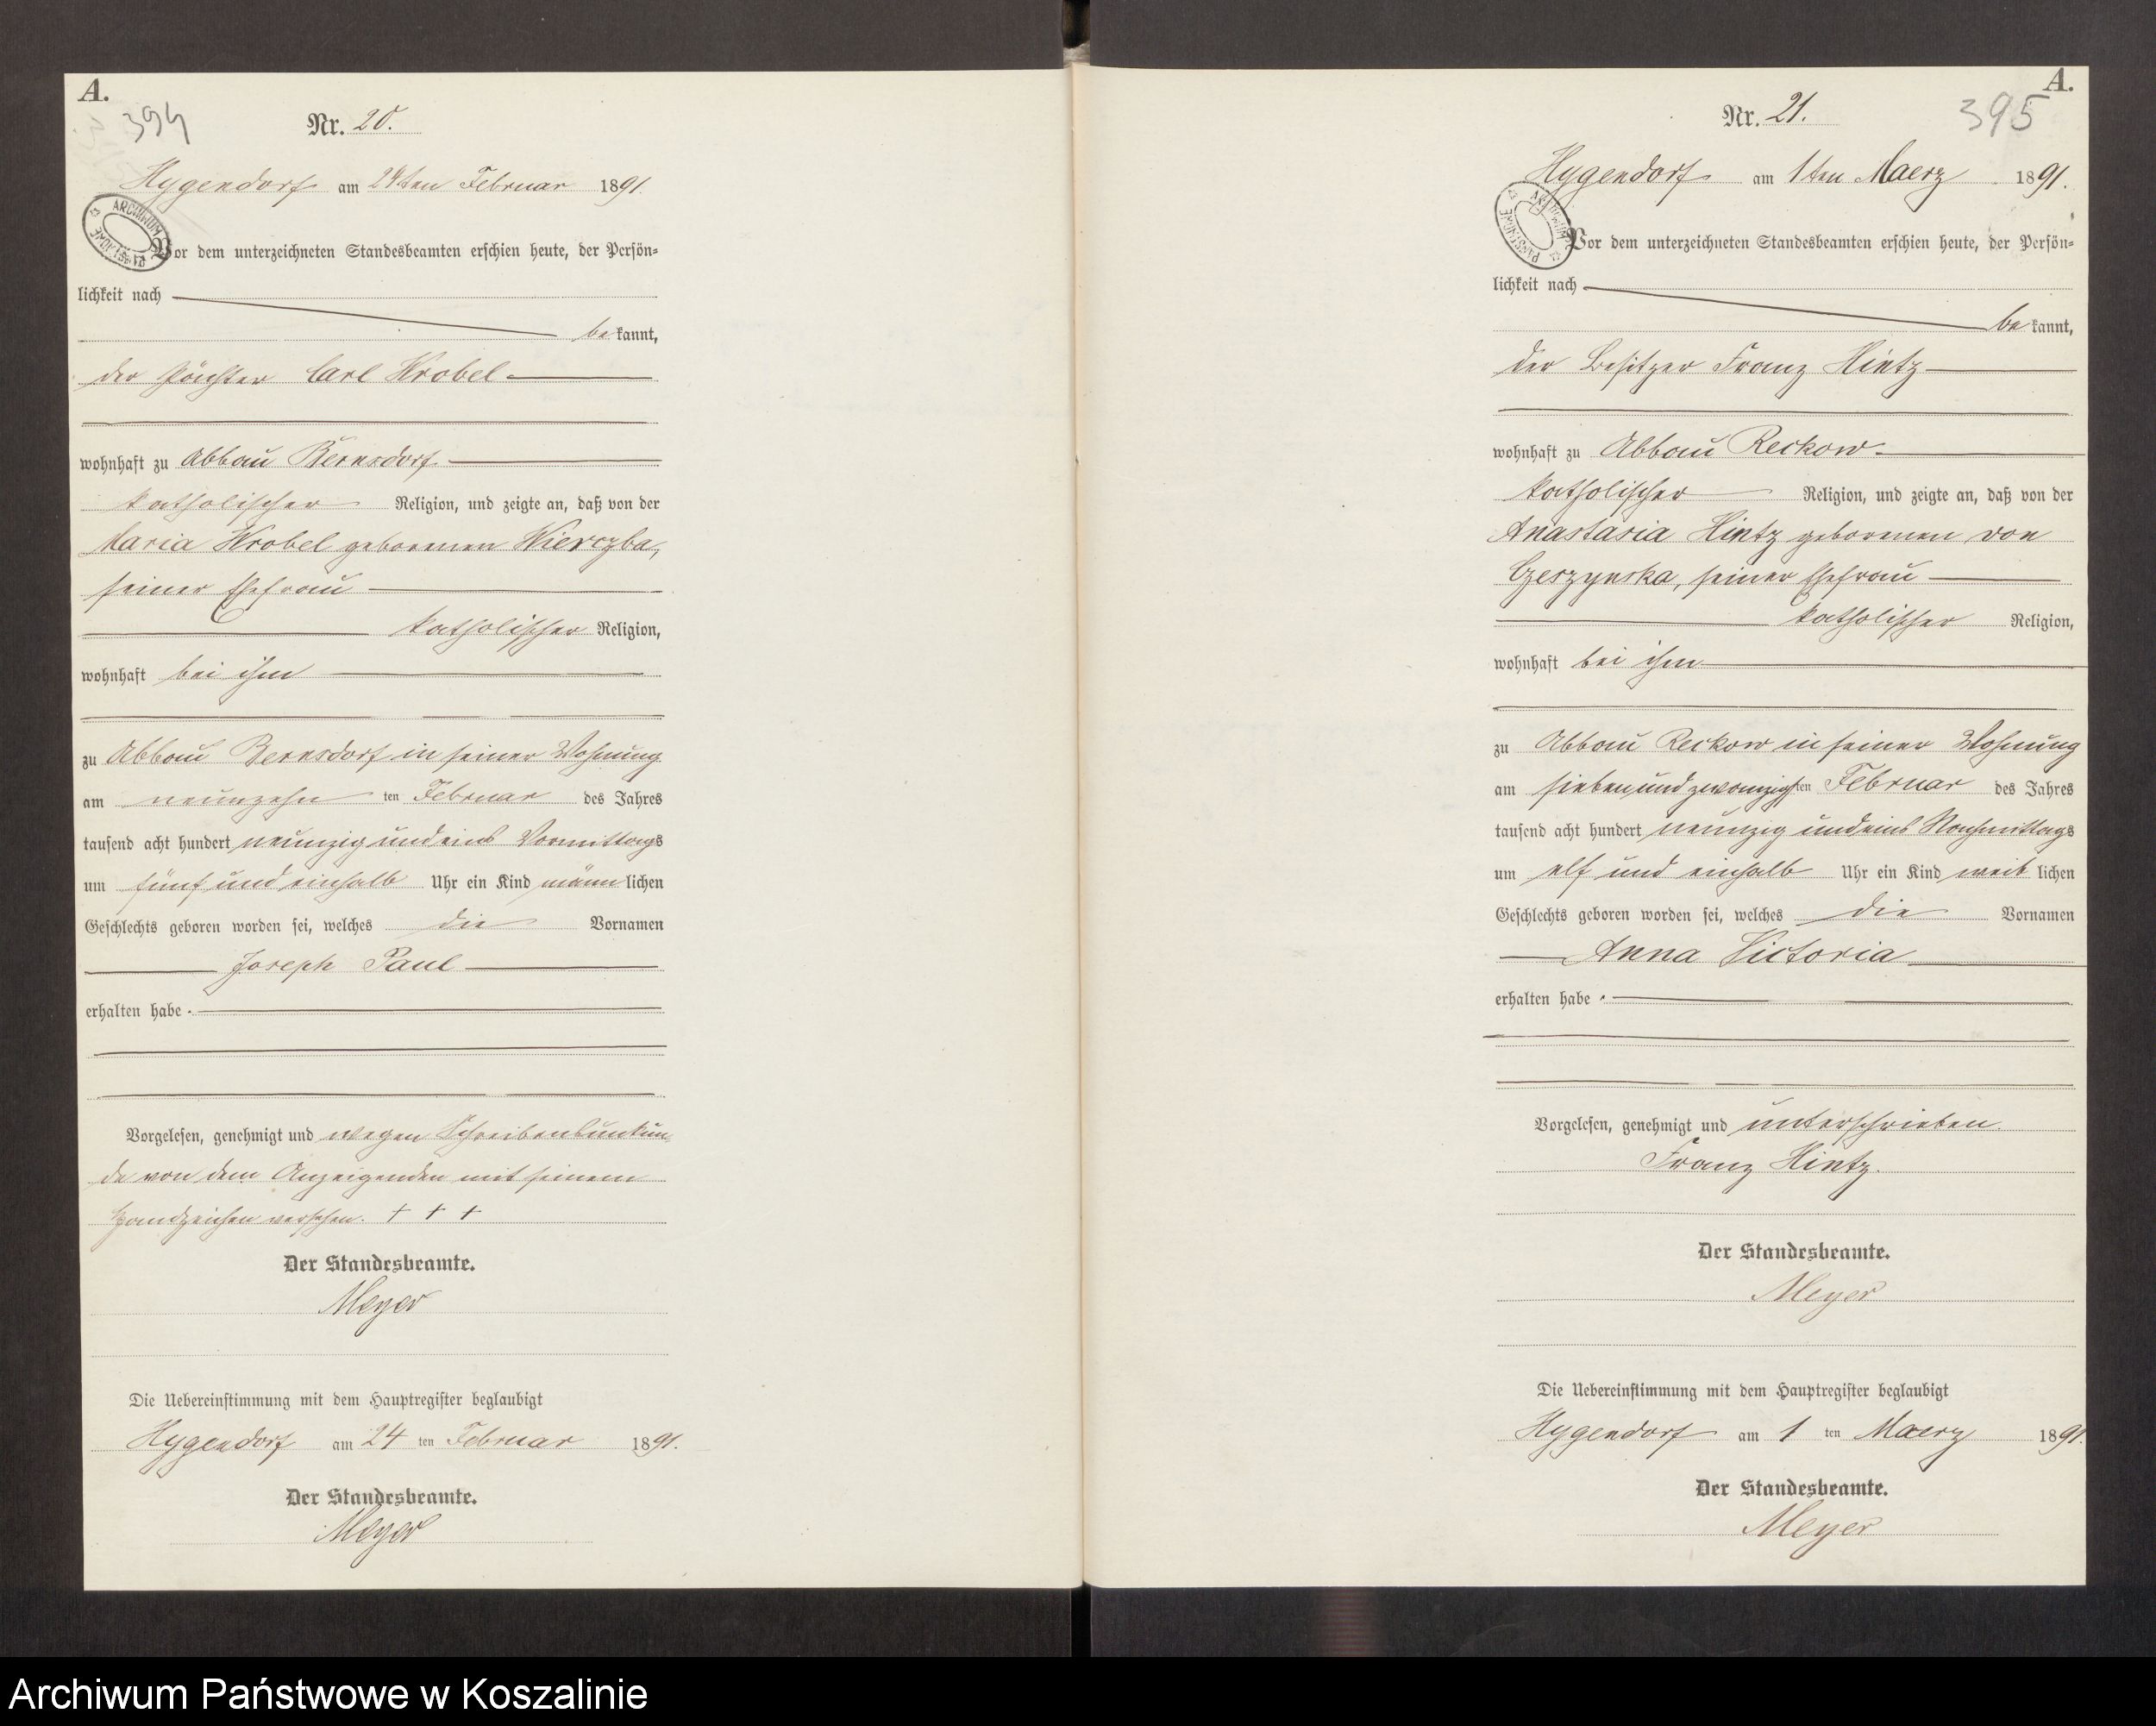 A.
394
Nr. 20.
Hygendorf am 24ten Februar 1891.
Vor dem unterzeichneten Standesbeamten erschien heute, der Persön-
lichkeit nach
be kannt,
der Pächter Carl Wrobel
wohnhaft zu Abbau Bernsdorf
katholischer Religion, und zeigte an, daß von der
Maria Wrobel geborenen Wierczba,
seiner Ehefrau
katholischer Religion,
wohnhaft bei ihm
zu Abbau Bernsdorf in seiner Wohnung
am neunzehn ten Februar des Jahres
tausend acht hundert neunzig und eins Vormittags
um fünf und einhalb Uhr ein Kind männ lichen
Geschlechts geboren worden sei, welches die Vornamen
Joseph Paul
erhalten habe.
Vorgelesen, genehmigt und wegen Schreibensunkun-
de von dem Anzeigenden mit seinem
Handzeichen versehen. + + +
Der Standesbeamte.
Meyer
Die Uebereinstimmung mit dem Hauptregister beglaubigt
Hygendorf am 24 ten Februar 1891.
Der Standesbeamte.
Meyer
A.
395
Nr. 21.
Hygendorf am 1ten Maerz 1891.
Vor dem unterzeichneten Standesbeamten erschien heute, der Persön-
lichkeit nach
be kannt,
der Besitzer Franz Hintz
wohnhaft zu Abbau Reckow
katholischer Religion, und zeigte an, daß von der
Anastasia Hintz geborenen von
Czeszynska, seiner Ehefrau
katholischer Religion,
wohnhaft bei ihm
zu Abbau Reckow in seiner Wohnung
am siebenundzwanzigsten Februar des Jahres
tausend acht hundert neunzig und eins Nachmittags
um elf und einhalb Uhr ein Kind weib lichen
Geschlechts geboren worden sei, welches die Vornamen
Anna Victoria
erhalten habe.
Vorgelesen, genehmigt und unterschrieben.
Franz Hintz.
Der Standesbeamte.
Meyer
Die Uebereinstimmung mit dem Hauptregister beglaubigt
Hygendorf am 1 ten Maerz 1891.
Der Standesbeamte.
Meyer
Archiwum Państwowe w Koszalinie